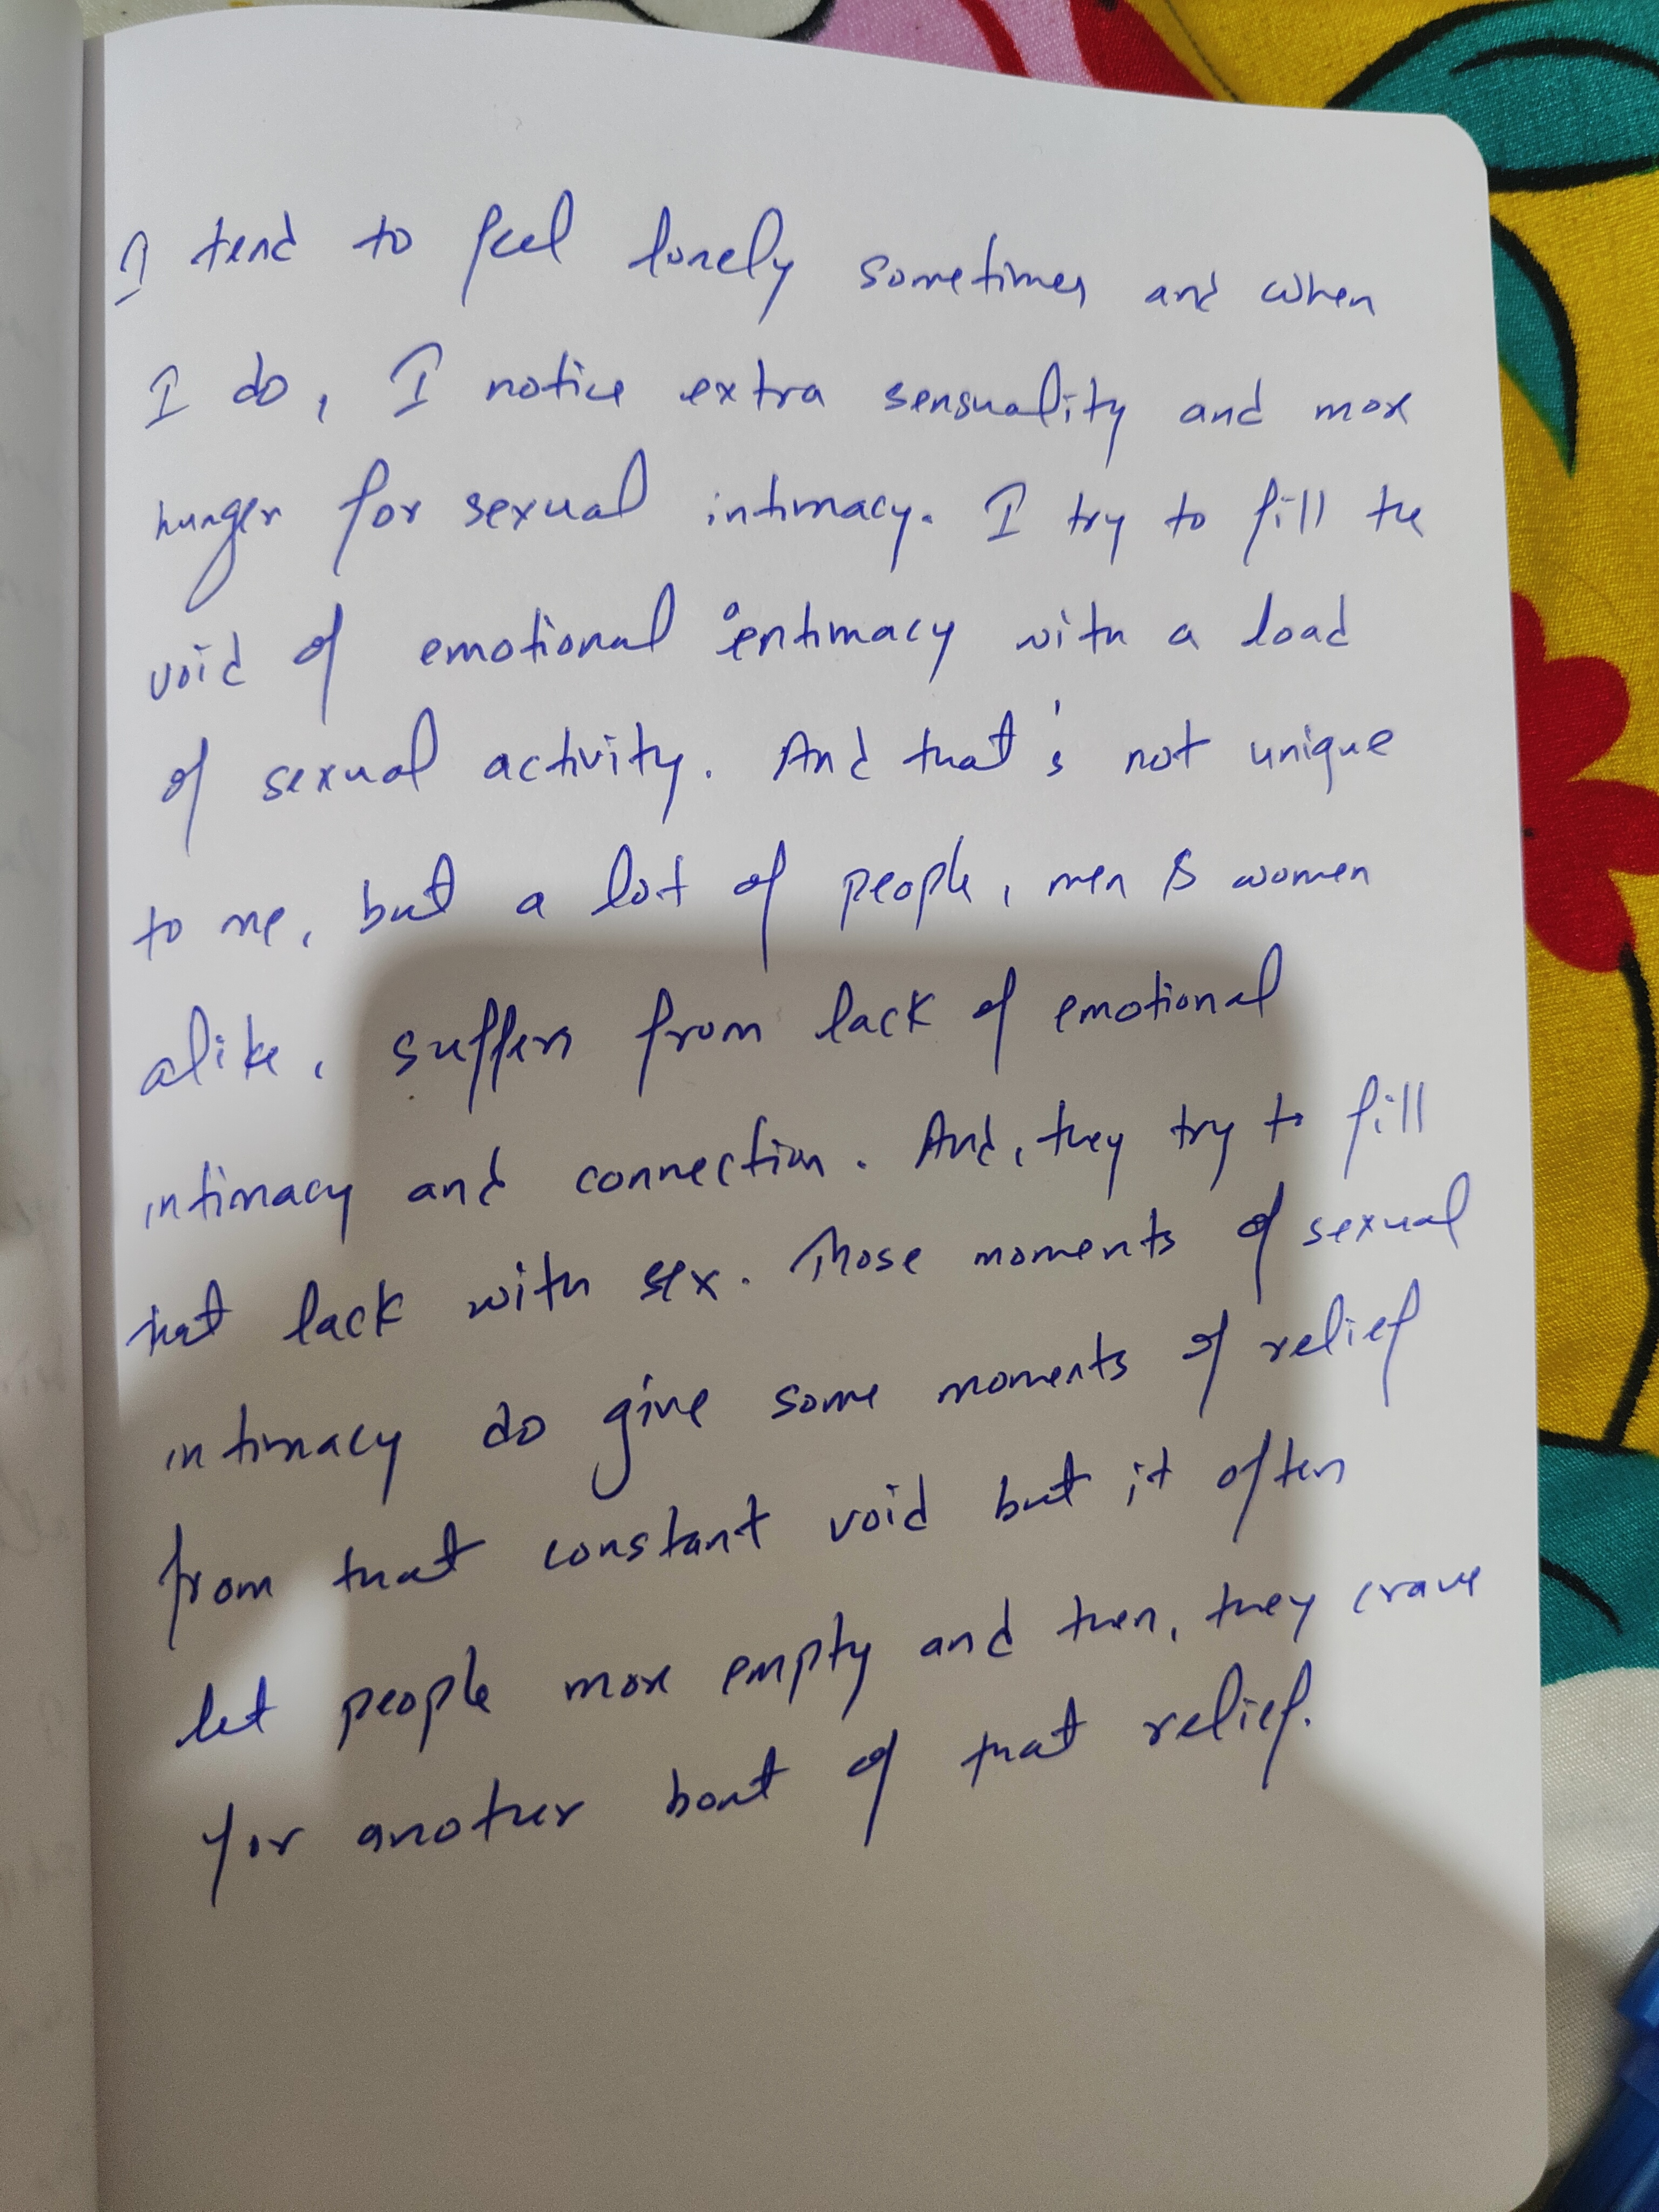 I tend to feel lonely sometimes and when
I do, I notice extra sensuality and more
hunger for sexual intimacy. I try to fill the
void of emotional intimacy with a load
of sexual activity. And that's not unique
to me, but a lot of people, men & women
alike, suffers from lack of emotional
intimacy and connection. And, they try to fill
that lack with sex. Those moments of sexual
intimacy do give some moments of relief
from that constant void but it often
let people more empty and then, they crave
for another bout of that relief.